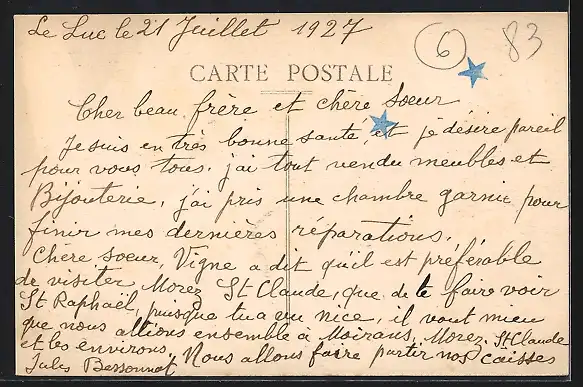 Le Luc le 21 Juillet 1927
6 83
CARTE POSTALE
Cher beau frère et chère Soeur
Je suis en très bonne santé, et je désire pareil
pour vous tous. j'ai tout vendu meubles et
Bijouterie, j'ai pris une chambre garnie pour
finir mes dernières réparations.
Chère soeur, Vigne a dit qu'il est préférable
de visiter Morez St Claude, que de te faire voir
St Raphaël, puisque tu a vu nice, il vaut mieu
que nous allions ensemble à Moirans, Morez. St Claude
et les environs. Nous allons faire partir nos caisses
Jules Bessonnat